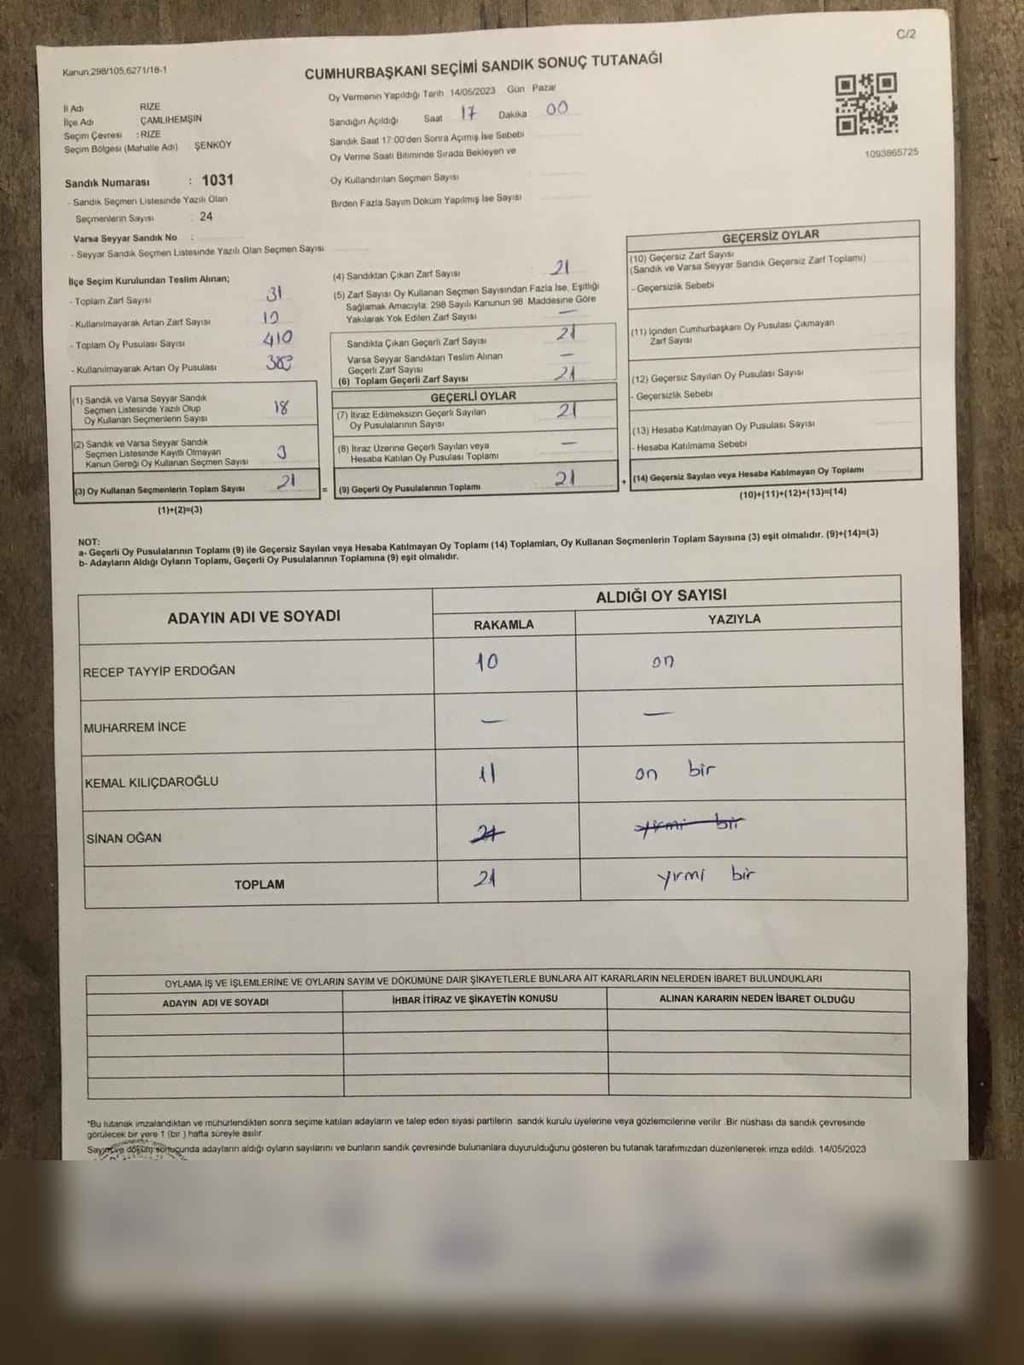 C/2
Kanun.298/105,6271/18-1
CUMHURBAŞKANI SEÇİMİ SANDIK SONUÇ TUTANAĞI
İl Adı RİZE
İlçe Adı ÇAMLIHEMŞİN
Seçim Çevresi : RİZE
Seçim Bölgesi (Mahalle Adı) ŞENKÖY
Oy Vermenin Yapıldığı Tarih 14/05/2023 Gün Pazar
Sandığın Açıldığı Saat 17 Dakika 00
Sandık Saat 17:00'den Sonra Açımış İse Sebebi
Oy Verme Saati Bitiminde Sırada Bekleyen ve
Oy Kullandırılan Seçmen Sayısı
Birden Fazla Sayım Döküm Yapılmış İse Sayısı
1093865725
Sandık Numarası : 1031
- Sandık Seçmen Listesinde Yazılı Olan
Seçmenlerin Sayısı 24
Varsa Seyyar Sandık No :
- Seyyar Sandık Seçmen Listesinde Yazılı Olan Seçmen Sayısı
İlçe Seçim Kurulundan Teslim Alınan;
- Toplam Zarf Sayısı 31
- Kullanılmayarak Artan Zarf Sayısı 10
- Toplam Oy Pusulası Sayısı 410
- Kullanılmayarak Artan Oy Pusulası
(1) Sandık ve Varsa Seyyar Sandık
Seçmen Listesinde Yazılı Olup
Oy Kullanan Seçmenlerin Sayısı 18
(2) Sandık ve Varsa Seyyar Sandık
Seçmen Listesinde Kayıtlı Olmayan
Kanun Gereği Oy Kullanan Seçmen Sayısı 3
(3) Oy Kullanan Seçmenlerin Toplam Sayısı 21 =
(1)+(2)=(3)
(4) Sandıktan Çıkan Zarf Sayısı 21
(5) Zarf Sayısı Oy Kullanan Seçmen Sayısından Fazla İse, Eşitliği
Sağlamak Amacıyla; 298 Sayılı Kanunun 98. Maddesine Göre
Yakılarak Yok Edilen Zarf Sayısı —
Sandıkta Çıkan Geçerli Zarf Sayısı 21
Varsa Seyyar Sandıktan Teslim Alınan
Geçerli Zarf Sayısı —
(6) Toplam Geçerli Zarf Sayısı 21
GEÇERLİ OYLAR
(7) İtiraz Edilmeksizin Geçerli Sayılan
Oy Pusulalarının Sayısı 21
(8) İtiraz Üzerine Geçerli Sayılan veya
Hesaba Katılan Oy Pusulası Toplamı —
(9) Geçerli Oy Pusulalarının Toplamı 21 +
GEÇERSİZ OYLAR
(10) Geçersiz Zarf Sayısı
(Sandık ve Varsa Seyyar Sandık Geçersiz Zarf Toplamı)
- Geçersizlik Sebebi
(11) İçinden Cumhurbaşkanı Oy Pusulası Çıkmayan
Zarf Sayısı
(12) Geçersiz Sayılan Oy Pusulası Sayısı
- Geçersizlik Sebebi
(13) Hesaba Katılmayan Oy Pusulası Sayısı
- Hesaba Katılmama Sebebi
(14) Geçersiz Sayılan veya Hesaba Katılmayan Oy Toplamı
(10)+(11)+(12)+(13)=(14)
NOT:
a- Geçerli Oy Pusulalarının Toplamı (9) ile Geçersiz Sayılan veya Hesaba Katılmayan Oy Toplamı (14) Toplamları, Oy Kullanan Seçmenlerin Toplam Sayısına (3) eşit olmalıdır. (9)+(14)=(3)
b- Adayların Aldığı Oyların Toplamı, Geçerli Oy Pusulalarının Toplamına (9) eşit olmalıdır.
ADAYIN ADI VE SOYADI ALDIĞI OY SAYISI
RAKAMLA YAZIYLA
RECEP TAYYİP ERDOĞAN 10 on
MUHARREM İNCE — —
KEMAL KILIÇDAROĞLU 11 on bir
SİNAN OĞAN 21 yirmi bir
TOPLAM 21 yirmi bir
OYLAMA İŞ VE İŞLEMLERİNE VE OYLARIN SAYIM VE DÖKÜMÜNE DAİR ŞİKAYETLERLE BUNLARA AİT KARARLARIN NELERDEN İBARET BULUNDUKLARI
ADAYIN ADI VE SOYADI İHBAR İTİRAZ VE ŞİKAYETİN KONUSU ALINAN KARARIN NEDEN İBARET OLDUĞU
*Bu tutanak imzalandıktan ve mühürlendikten sonra seçime katılan adayların ve talep eden siyasi partilerin sandık kurulu üyelerine veya gözlemcilerine verilir. Bir nüshası da sandık çevresinde
görülecek bir yere 1 (bir) hafta süreyle asılır.
Sayım ve döküm sonucunda adayların aldığı oyların sayılarını ve bunların sandık çevresinde bulunanlara duyurulduğunu gösteren bu tutanak tarafımızdan düzenlenerek imza edildi. 14/05/2023